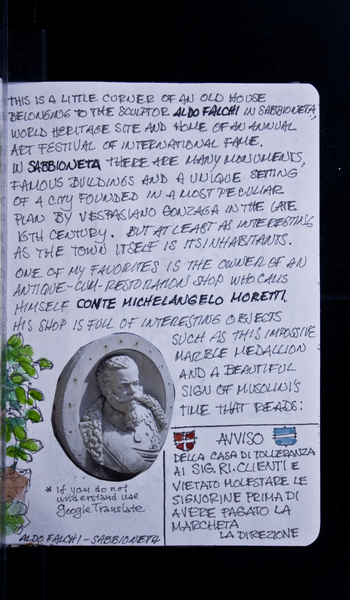 THIS IS A LITTLE CORNER OF AN OLD HOUSE
BELONGING TO THE SCULPTOR ALDO FALCHI IN SABBIONETA,
WORLD HERITAGE SITE AND HOME OF AN ANNUAL
ART FESTIVAL OF INTERNATIONAL FAME.
IN SABBIONETA THERE ARE MANY MONUMENTS,
FAMOUS BUILDINGS AND A UNIQUE SETTING
OF A CITY FOUNDED IN A MOST PECULIAR
PLAN BY VESPASIANO GONZAGA IN THE LATE
16TH CENTURY. BUT AT LEAST AS INTERESTING
AS THE TOWN ITSELF IS ITS INHABITANTS.
ONE OF MY FAVORITES IS THE OWNER OF AN
ANTIQUE-CUM-RESTORATION SHOP WHO CALLS
HIMSELF CONTE MICHELANGELO MORETTI.
HIS SHOP IS FULL OF INTERESTING OBJECTS
SUCH AS THIS IMPOSSIVE
MARBLE MEDALLION
AND A BEAUTIFUL
SIGN OF MUSOLINI'S
TIME THAT READS:
AVVISO
DELLA CASA DI TOLLERANZA
AI SIG.RI. CLIENTI E
VIETATO MOLESTARE LE
SIGNORINE PRIMA DI
AVERE PAGATO LA
MARCHETA
LA DIREZIONE
* If you do not
understand use
Google Translate
ALDO FALCHI - SABBIONETA